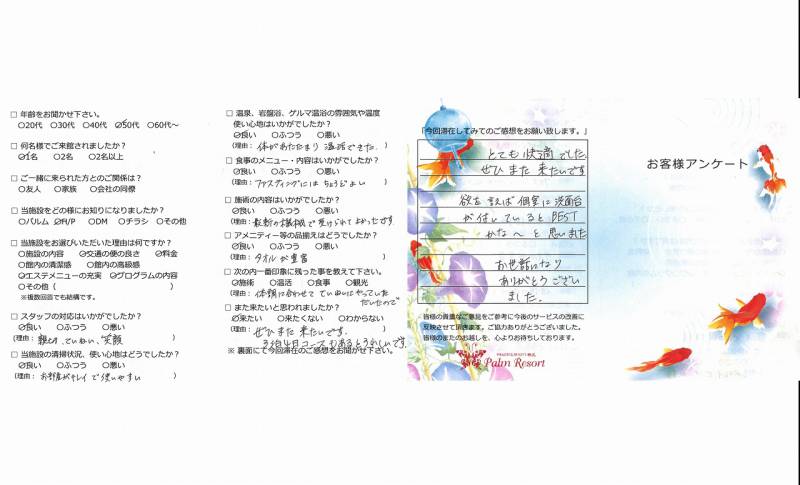 □ 年齢をお聞かせ下さい。
○20代 ○30代 ○40代 ☑50代 ○60代～
□ 何名様でご来館されましたか？
☑1名 ○2名 ○2名以上
□ ご一緒に来られた方とのご関係は？
○友人 ○家族 ○会社の同僚
□ 当施設をどの様にお知りになりましたか？
○パルム ☑H/P ○DM ○チラシ ○その他
□ 当施設をお選びいただいた理由は何ですか？
○施設の内容 ☑交通の便の良さ ☑料金
○館内の清潔感 ○館内の高級感
☑エステメニューの充実 ☑プログラムの内容
○その他（ ）
※複数回答でも結構です。
□ スタッフの対応はいかがでしたか？
☑良い ○ふつう ○悪い
(理由： 親切、ていねい、笑顔 )
□ 当施設の清掃状況、使い心地はどうでしたか？
☑良い ○ふつう ○悪い
(理由： お部屋がキレイで使いやすい )
□ 温泉、岩盤浴、ゲルマ温浴の雰囲気や温度
使い心地はいかがでしたか？
☑良い ○ふつう ○悪い
(理由： 体があたたまり 温活できた. )
□ 食事のメニュー・内容はいかがでしたか？
☑良い ○ふつう ○悪い
(理由： ファスティングにはちょうどよい )
□ 施術の内容はいかがでしたか？
☑良い ○ふつう ○悪い
(理由： 最新の機械で受けられてよかったです.
□ アメニティー等の品揃えはどうでしたか？
☑良い ○ふつう ○悪い
(理由： タオルが豊富 )
□ 次の内一番印象に残った事を教えて下さい。
☑施術 ○温活 ○食事 ○観光
(理由： 体調に合わせて ていねいにやっていただいたので
□ また来たいと思われましたか？
☑来たい ○来たくない ○わからない
ぜひまた来たいです.
3泊4日コースもあるとうれしいです.
※ 裏面にて今回滞在のご感想をお聞かせ下さい。
「今回滞在してみてのご感想をお願い致します。」
とても快適でした.
ぜひ また 来たいです
欲を言えば 個室に洗面台
が付いていると BEST
かな～と思いました
お世話になり
ありがとうござい
ました.
皆様の貴重なご意見をご参考に今後のサービスの改善に
反映させて頂きます。ご協力ありがとうございました。
皆様のまたのお越しを、心よりお待ちしております。
Palm Resort
お客様アンケート